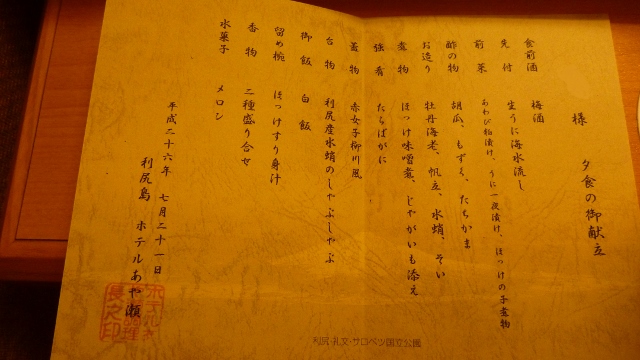 様　夕食の御献立
食前酒　梅酒
先付　生うに海水流し
前菜　あわび粕漬け、うに一夜漬け、ほっけの子煮物
酢の物　胡瓜、もずく、たちかま
お造り　牡丹海老、帆立、水蛸、そい
煮物　ほっけ味噌煮、じゃがいも添え
強肴　たらばがに
蓋物　赤女子柳川風
台物　利尻産水蛸のしゃぶしゃぶ
御飯　白飯
留め椀　ほっけすり身汁
香物　二種盛り合せ
水菓子　メロン
平成二十六年　七月二十一日
利尻島　ホテルあや瀬
利尻・礼文・サロベツ国立公園